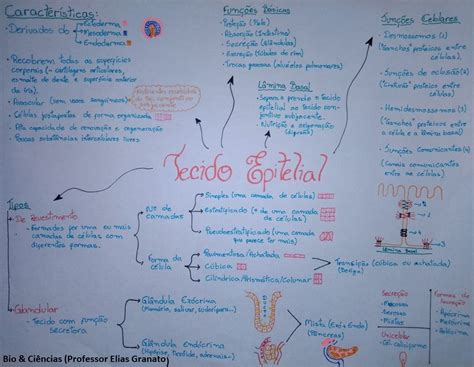 Características:
- Derivados do
Ectoderma
Mesoderma
Endoderma
- Recobrem todas as superfícies
corporais (- cartilagens articulares,
esmalte do dente e superfície anterior
da íris).
- Avascular (sem vasos sanguíneos)
- Células justapostas de forma organizada
- Alta capacidade de renovação e regeneração
- Poucas substâncias intercelulares livres
Funções Básicas
- Proteção (Pele)
- Absorção (Intestino)
- Secreção (Glândulas)
- Excreção (túbulos do rim)
- Trocas gasosas (alvéolos pulmonares)
Lâmina Basal
- Separa e prende o tecido
epitelial ao tecido con-
juntivo subjacente.
- Nutrição e oxigenação
(difusão)
Junções Celulares
- Desmossomos (1)
("Ganchos" proteicos entre
células).
- Junções de oclusão (2)
("cinturões" proteicos entre
células)
- Hemidesmossomos (3)
("Ganchos" proteicos entre
a célula e a lâmina basal)
- Junções comunicantes (4)
(Canais comunicantes
entre as células)
Tecido Epitelial
Tipos
- De Revestimento
- Formados por uma ou mais
camadas de células com
diferentes formas.
Nº de
camadas
Simples (uma camada de células)
Estratificado (+ de uma camada
de células)
Pseudoestratificado (uma camada
que parece ter mais)
Forma da
célula
Pavimentosa/Achatada
Cúbica
Cilíndrica/Prismática/Colunar
Transição (cúbica ou achatada)
(Bexiga)
1
2
3
4
Lâmina Basal
- Glandular
- Tecido com função
secretora
Glândula Exócrina
(Mamária, salivar, sudorípara...)
Glândula Endócrina
(Hipófise, tireóide, adrenais...)
Mista (End + Exo)
(Pâncreas)
Secreção
- Mucosa
- Serosa
Unicelular
- Cél. caliciforme
- Apócrina
- Merócrina
- Holócrina
Bio & Ciências (Professor Elias Granato)